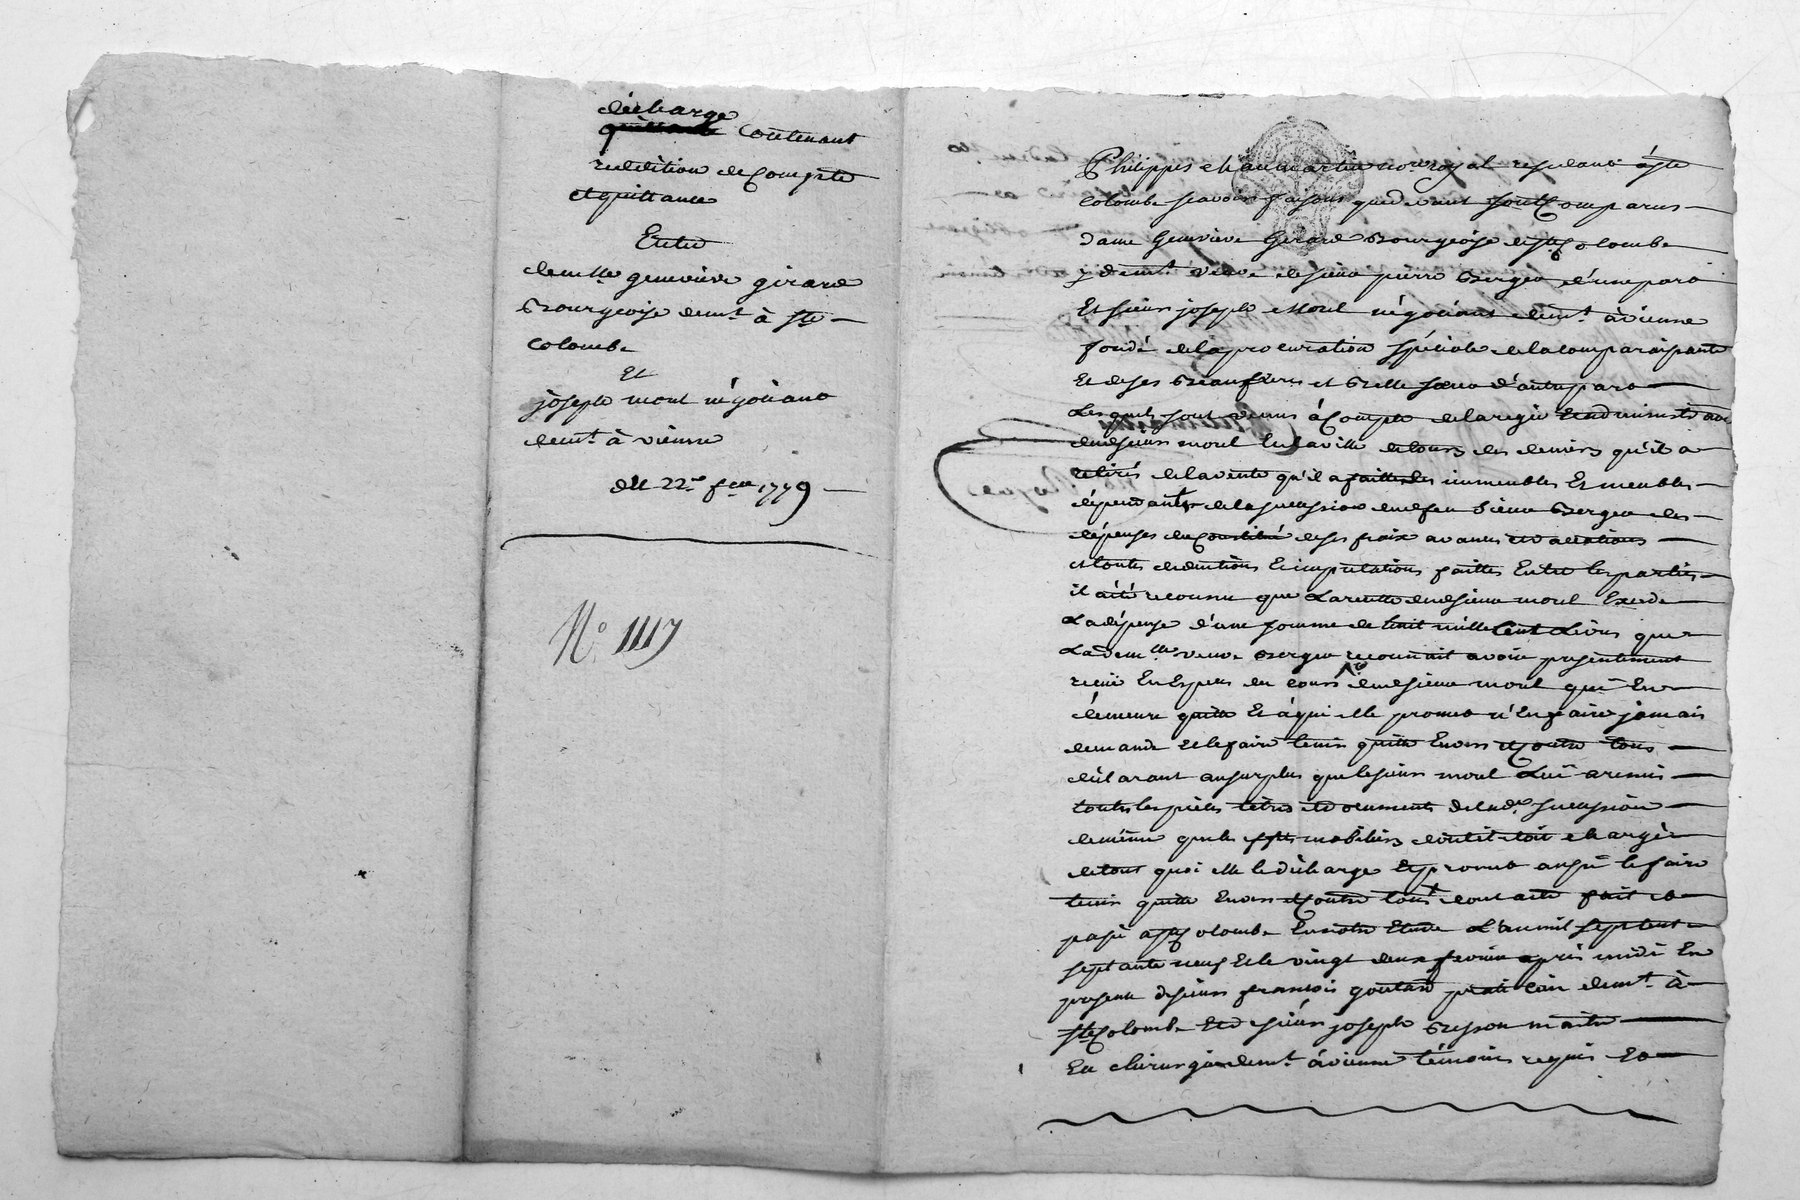 décharge
quittance Contenant
reddition de Compte
et quittance
Entre
demlle geneviève girard
Bourgeoise demt à ste
Colombe
Et
joseph morel négotiant
demt à vienne
du 22e fer 1779
No 1117
Philippes chaumartin nore royal residant à ste
Colombe scavoir faisons que devant sont Comparus
dame Geneviève Gerard Bourgeoise de ste Colombe
y demt veuve de sieur pierre Berger d'une part
Et sieur joseph Morel négotiant demt à vienne
fondé de la procuration spéciale de la comparaissante
Et de ses Beaufreres et Belle soeur d'autre part
Lesquels sont venus à Compte de la regie Et administration
dudsieur morel En la ville de tours des deniers qu'il a
retirés de la vente qu'il a faitte des immeubles Et meubles
dépendants de la succession dudfeu Sieur Berger des
dépenses de ses fraix avances et vacations
et toutes déductions Et imputations faittes Entre les parties
il a été reconnu que La recette dudsieur morel Excede
La dépense d'une somme de huit mille cent Livres que
Lad demlle veuve Berger reconnait avoir presentement
reçu En Espèces de cours dudsieur morel qui En
demeure quitte Et à qui elle promet n'En faire jamais
demande et le faire tenir quitte Envers et Contre tous
déclarant au surplus que le sieur morel Lui a remis
toutes les pièces titres et documents de lade succession
de même que les effets mobiliers dont il étoit chargé
de tous quoi elle le décharge Et promet aussi le faire
tenir quitte Envers et Contre tous dont acte fait et
passé à ste Colombe En notre Etude L'an mil sept cent
septante neuf Et le vingt deux fevrier après midi En
presence de sieur françois goutard praticien demt à
ste Colombe Et de sieur joseph Besson maitre
En chirurgie demt à vienne témoins requis Et